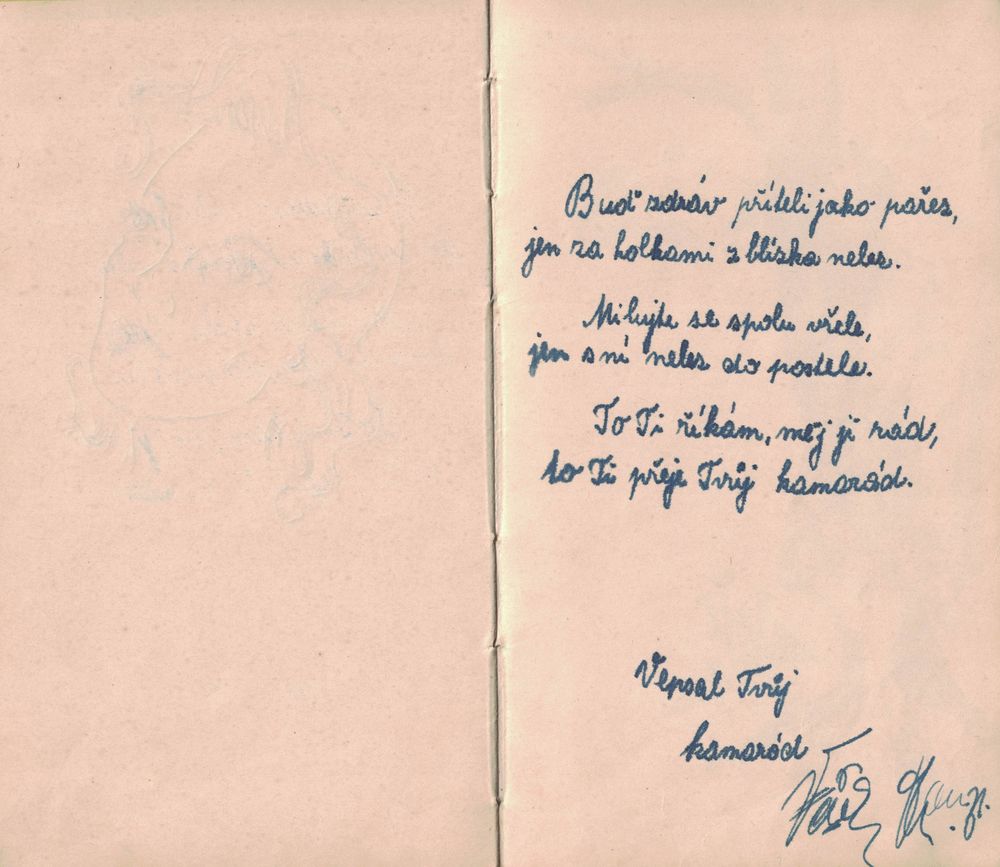 Buď zdráv příteli jako pařez,
jen za holkami z blízka nelez.
Milujte se spolu vřele,
jen s ní nelez do postele.
To Ti říkám, měj ji rád,
to Ti přeje Tvůj kamarád.
Vepsal Tvůj
kamarád